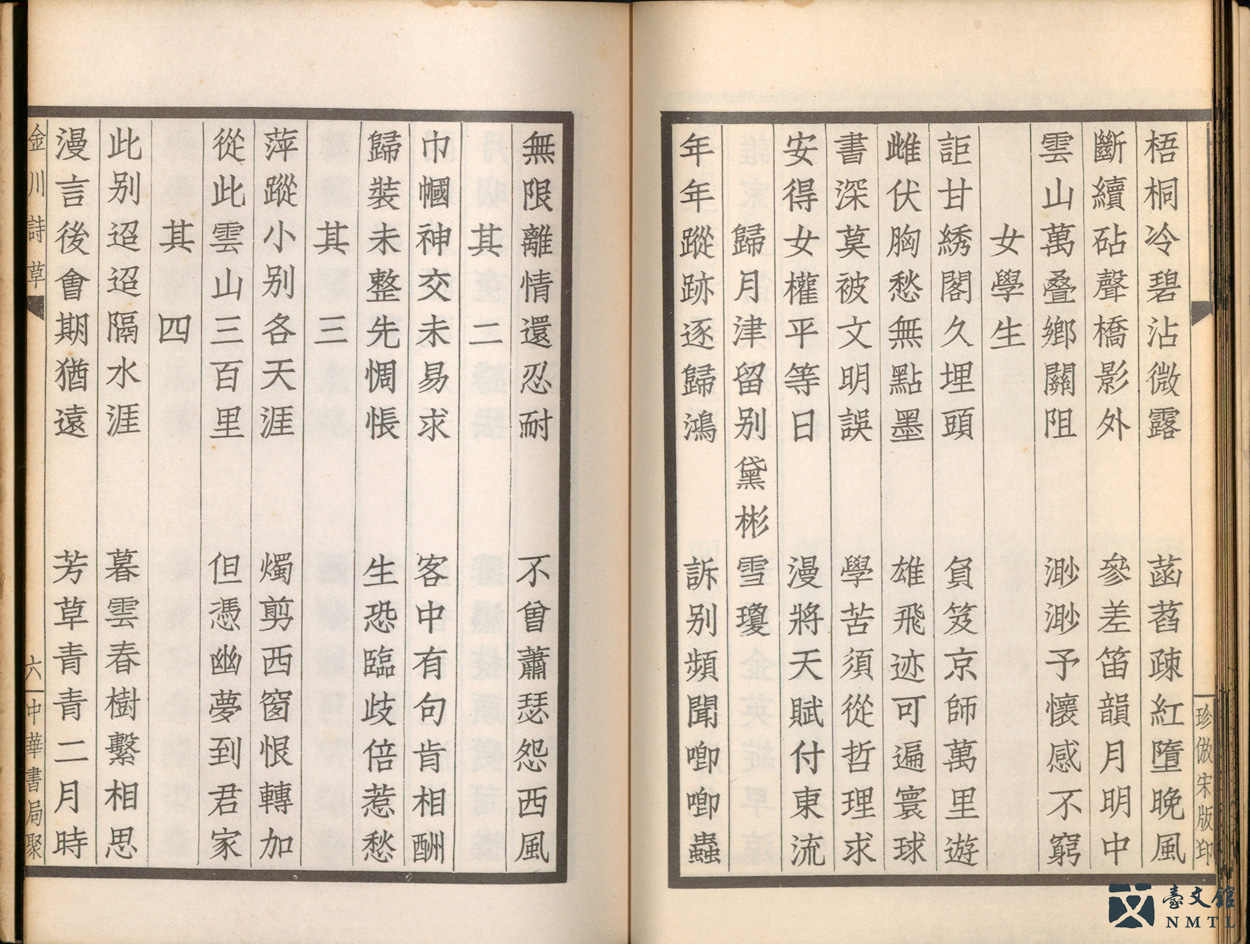 珍倣宋版印
梧桐冷碧沾微露　菡萏疎紅墮晚風
斷續砧聲橋影外　參差笛韻月明中
雲山萬疊鄉關阻　渺渺予懷感不窮
女學生
詎甘綉閣久埋頭　負笈京師萬里遊
雌伏胸愁無點墨　雄飛迹可遍寰球
書深莫被文明誤　學苦須從哲理求
安得女權平等日　漫將天賦付東流
歸月津留別黛彬雪瓊
年年蹤跡逐歸鴻　訴別頻聞喞喞蟲
無限離情還忍耐　不曾蕭瑟怨西風
其二
巾幗神交未易求　客中有句肯相酬
歸裝未整先惆悵　生恐臨歧倍惹愁
其三
萍蹤小別各天涯　燭剪西窗恨轉加
從此雲山三百里　但憑幽夢到君家
其四
此別迢迢隔水涯　暮雲春樹繫相思
漫言後會期猶遠　芳草青青二月時
金川詩草　六　中華書局聚
臺文館
NMTL